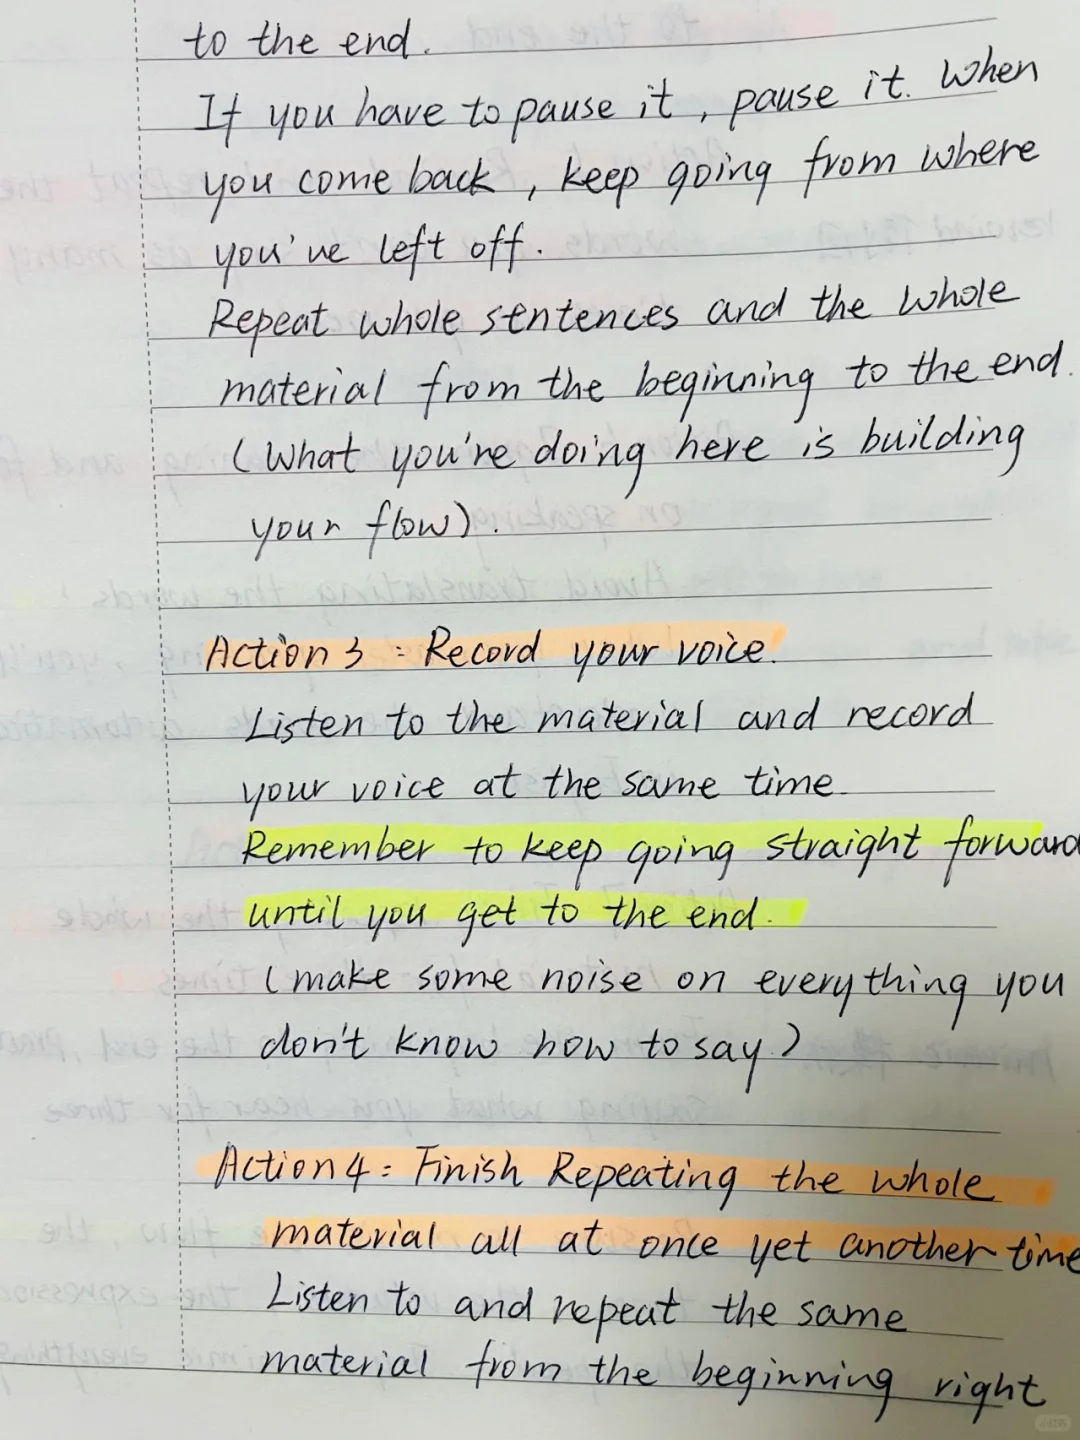 to the end.
If you have to pause it, pause it. When
you come back, keep going from where
you've left off.
Repeat whole sentences and the whole
material from the beginning to the end.
(What you're doing here is building
your flow).
Action 3: Record your voice.
Listen to the material and record
your voice at the same time.
Remember to keep going straight forward
until you get to the end.
(make some noise on everything you
don't know how to say.)
Action 4: Finish Repeating the whole
material all at once yet another time
Listen to and repeat the same
material from the beginning right